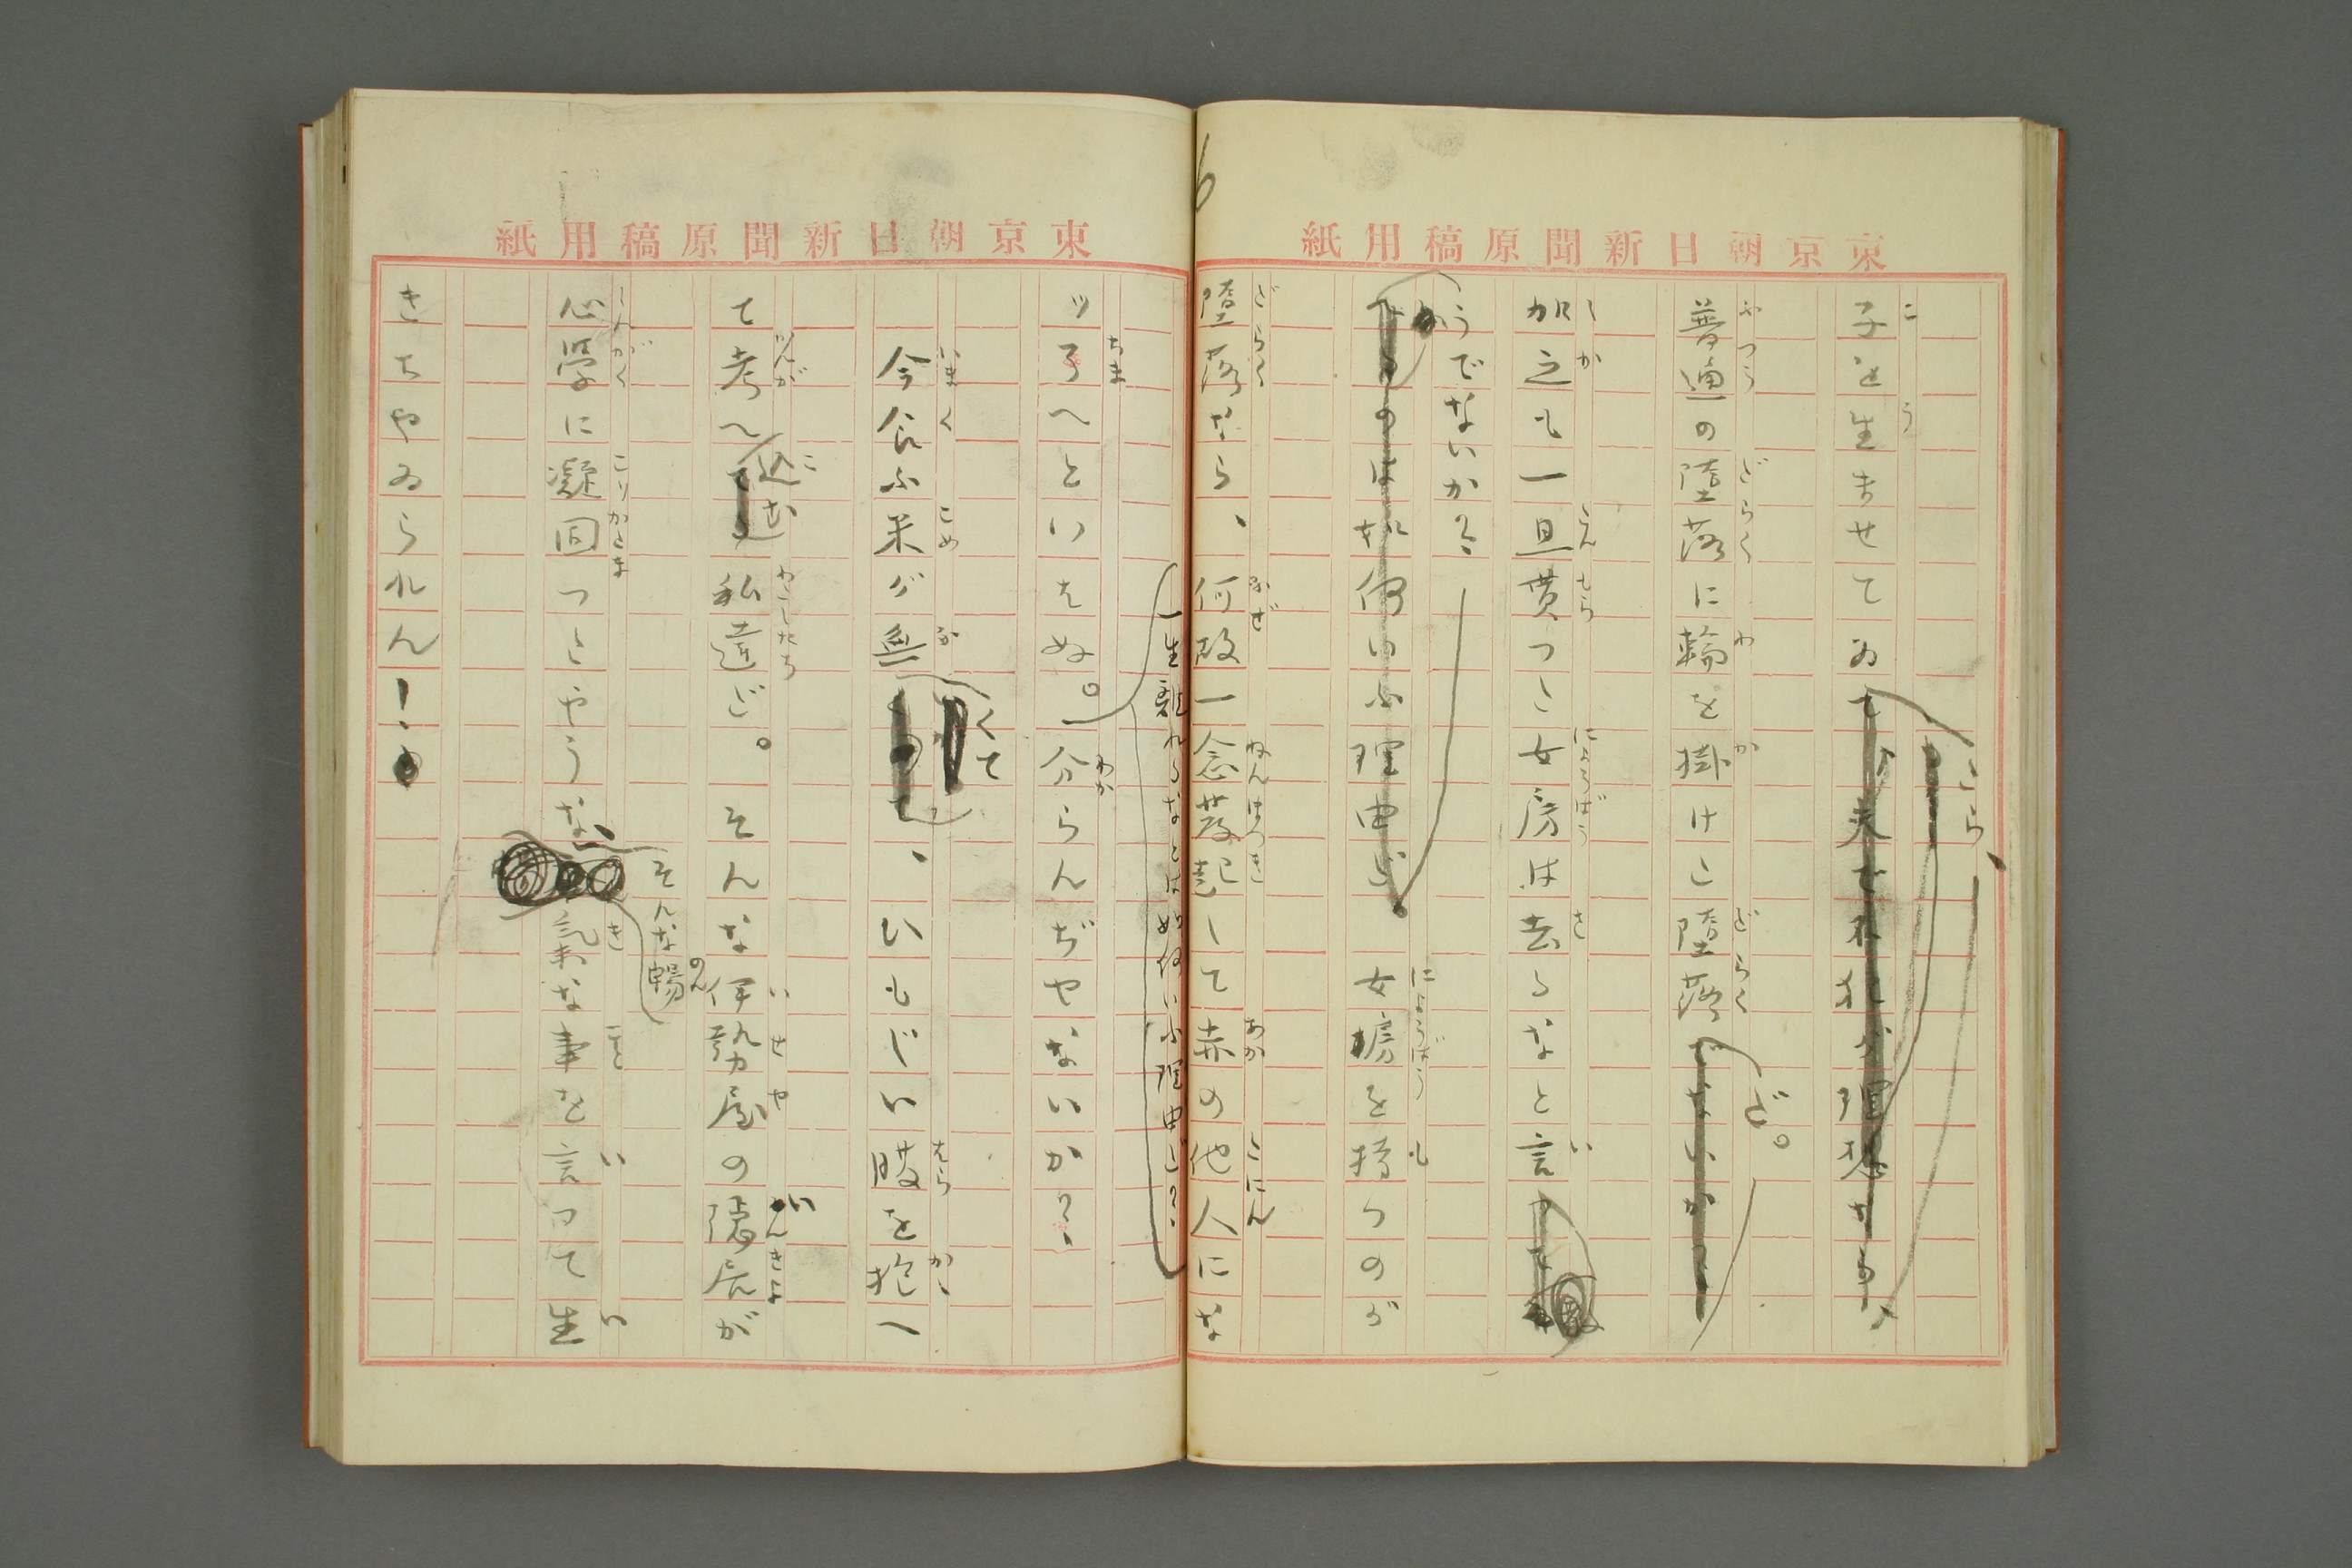 東京朝日新聞原稿用紙
子を生ませてゐ
たら、
普通の堕落に輪を掛けた堕落
だ。
加之も一旦貰つた女房は去るなと言
うでないか?
女房を持つのが
堕落なら、何故一念発起して赤の他人にな
東京朝日新聞原稿用紙
ツ了へといはぬ。
一生離れるなとは如何いふ理由だ?
分らんぢやないか?
今食ふ米が無
くて
、ひもじい腹を抱へ
て考へ
込む
私達だ。そんな伊勢屋の隠居が
心学に凝固つたやうな、
そんな暢
気な事を言つて生
きちやゐられん!